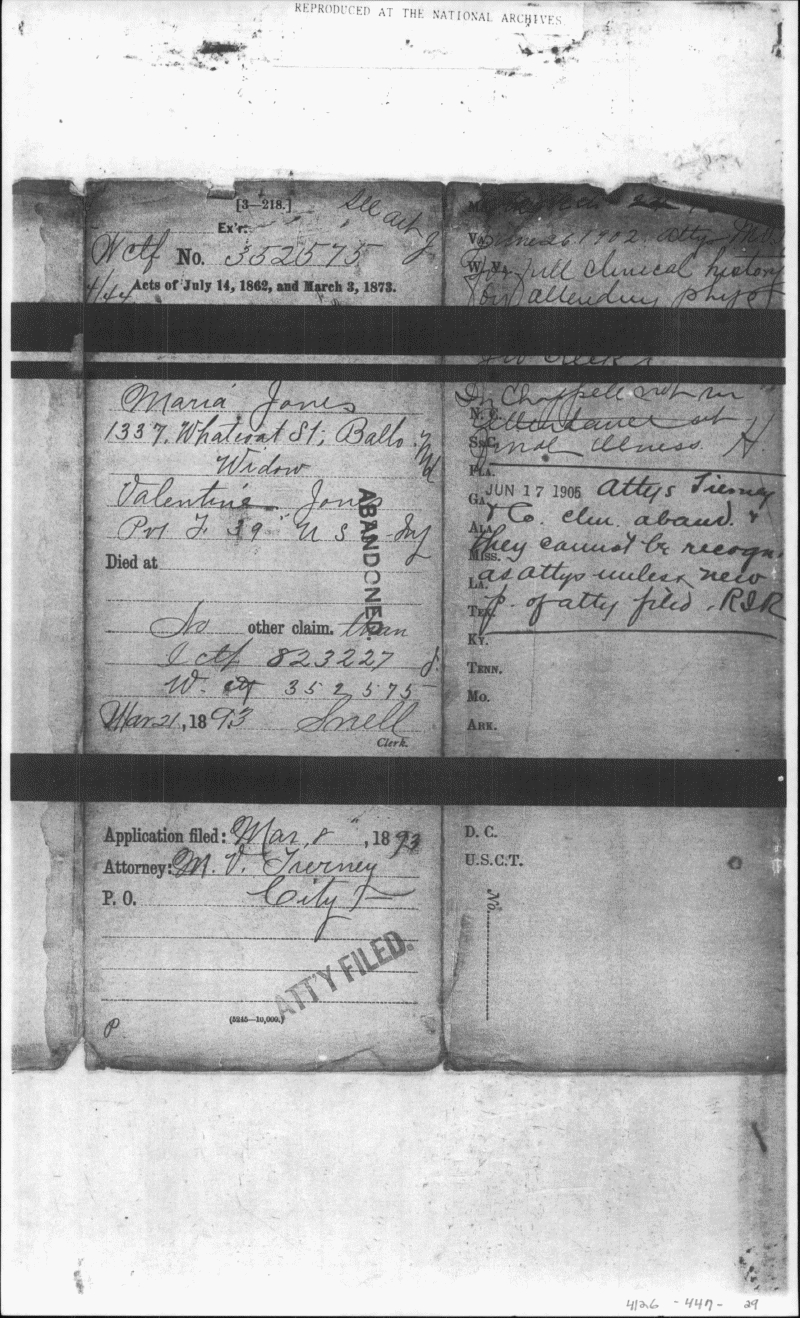 REPRODUCED AT THE NATIONAL ARCHIVES
[3—218.]
See act
Ex'r:
W ctf No. 352575
Acts of July 14, 1862, and March 3, 1873.
Maria Jones
1337, Whatcoat St; Balto. Md
Widow
Valentine Jones
Pvt F. 39" U S Inf
Died at
ABANDONED.
No other claim. than
I ctf 823227 J.
W. ctf 352575
Mar 21, 1893 Snell
Clerk.
Application filed: Mar. 8", 1893
Attorney: M. V. Tierney
P. O. City
ATT'Y FILED.
(5245—10,000.)
P.
VA. June 26 1902. Atty
W. VA. for full clinical history
attending phys
Dr Chappell not in
N. C. attendance at
S. C. final illness. H.
FLA.
GA. JUN 17 1905 Attys Tierney
& Co. clm. aband. &
ALA.
they cannot be recogn.
MISS.
as attys unless new
LA.
TEX. p. of atty filed. RSR
KY.
TENN.
MO.
ARK.
D. C.
U.S.C.T.
No.
4126 - 447 - 29